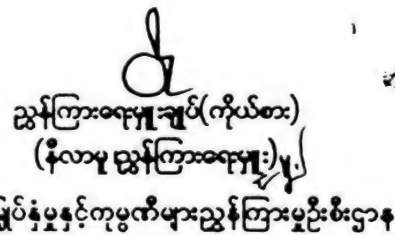 ညွှန်ကြားရေးမှူးချုပ်(ကိုယ်စား)
(နီလာမူ၊ညွှန်ကြားရေးမှူး)
မြှုပ်နှံမှုနှင့်ကုမ္ပဏီများညွှန်ကြားမှုဦးစီးဌာန